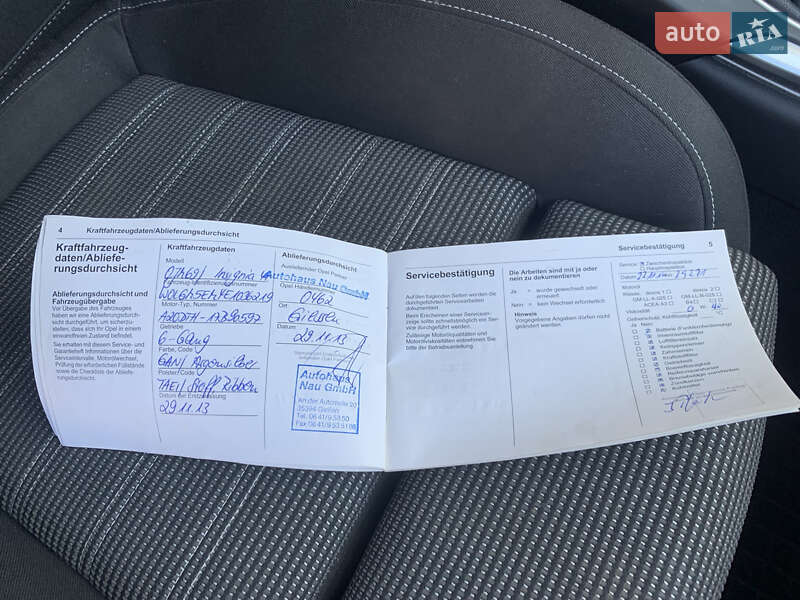 auto RIA .com
4 Kraftfahrzeugdaten/Ablieferungsdurchsicht
Kraftfahrzeug-
daten/Abliefe-
rungsdurchsicht
Ablieferungsdurchsicht und
Fahrzeugübergabe
Vor Übergabe des Fahrzeuges
haben wir eine Ablieferungsdurch-
sicht durchgeführt, um sicherzu-
stellen, dass sich Ihr Opel in einem
einwandfreien Zustand befindet.
Sie erhalten mit diesem Service- und
Garantieheft Informationen über die
Serviceintervalle, Motorölwechsel,
Prüfung der erforderlichen Füllstände
sowie die Checkliste der Abliefe-
rungsdurchsicht.
Kraftfahrzeugdaten
Modell
Insignia
Fahrzeug-Identifizierungsnummer
Motor-Typ, Nummer
Getriebe
6-Gang
Farbe, Code
GAN/ Argonsilber
Polster/Code
Datum der Erstzulassung
29.11.13
Ablieferungsdurchsicht
Ausliefernder Opel Partner
Autohaus Nau GmbH
0462
Ort
Gießen
Datum
29.11.13
Autohaus
Nau GmbH
An der Automeile 20
35394 Gießen
Tel. 06 41/9 53 50
Fax 06 41/9 53 51 88
Servicebestätigung 5
Servicebestätigung
Auf den folgenden Seiten werden die
durchgeführten Servicearbeiten
dokumentiert.
Beim Erscheinen einer Servicean-
zeige sollte schnellstmöglich ein Ser-
vice durchgeführt werden.
Zulässige Motorölqualitäten und
Motorölviskositäten entnehmen Sie
bitte der Betriebsanleitung.
Die Arbeiten sind mit ja oder
nein zu dokumentieren
Ja = wurde gewechselt oder
erneuert
Nein = kein Wechsel erforderlich
Hinweis
Vorgegebene Angaben dürfen nicht
geändert werden.
Service
Datum
Motoröl
Viskosität
Ja Nein
Innenraumluftfilter
Luftfiltereinsatz
Zahnriemen
Kraftstofffilter
Bremsflüssigkeit
Zündkerzen